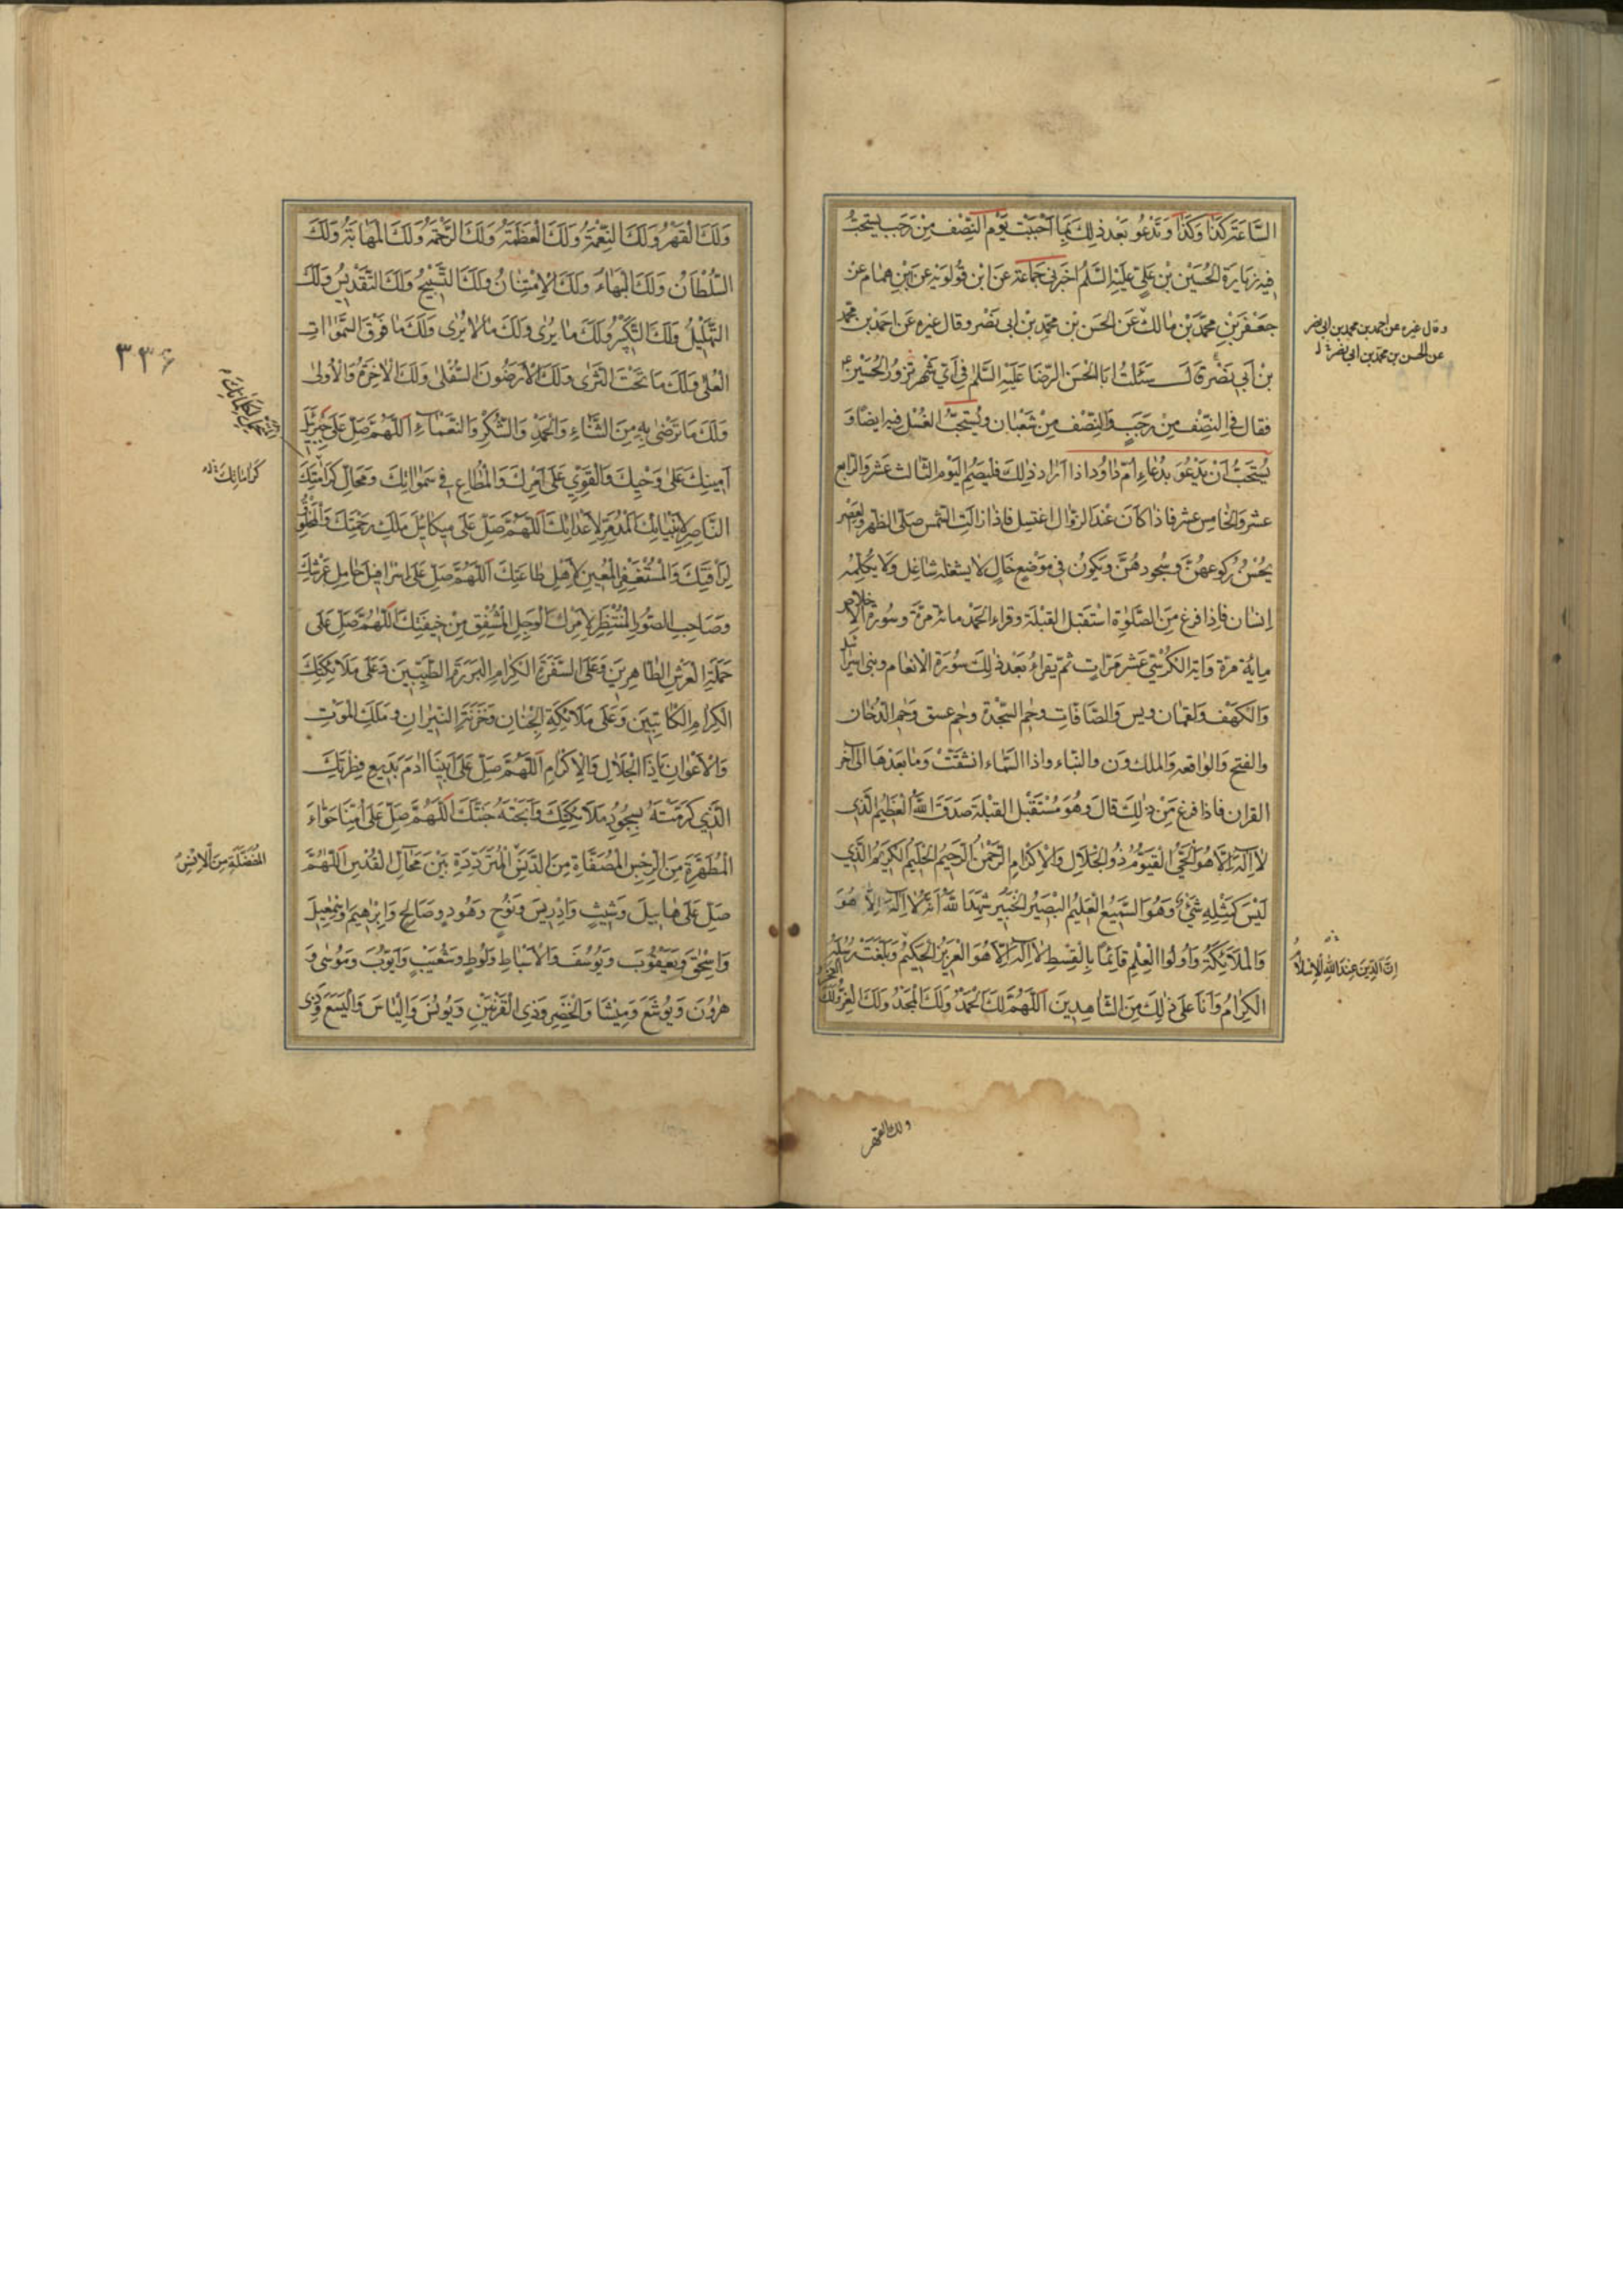 السَّاعَةَ كَذَا وَكَذَا وَتَدْعُو بَعْدَ ذٰلِكَ بِمَا اَحْبَبْتَ يَوْمُ النِّصْفِ مِنْ رَجَبٍ يُسْتَحَبُّ
فِيهِ زِيَارَةُ الْحُسَيْنِ بْنِ عَلِيٍّ عَلَيْهِ السَّلٰمُ اَخْبَرَنِي جَمَاعَةٌ عَنِ ابْنِ قُولَوَيْهِ عَنْ اَبِي هَمَّام عَنْ
جَعْفَرِ بْنِ مُحَمَّدِ بْنِ مَالِكٍ عَنِ الْحَسَنِ بْنِ مُحَمَّدِ بْنِ اَبِي نَصْر وقال غيره عَنْ اَحْمَدَ بْنِ مُحَمَّدِ
بْنِ اَبِي نَصْرٍ قَالَ سَئَلْتُ اَبَا الْحَسَنِ الرِّضَا عَلَيْهِ السَّلٰمُ فِي اَيِّ شَهْرٍ تَزُورُ الْحُسَيْنَ ع
فقال فِي النِّصْفِ مِنْ رَجَبٍ وَالنِّصْفِ مِنْ شَعْبَان وَيُسْتَحَبُّ الغُسْل فِيهِ اَيْضًا وَ
يُسْتَحَبُّ اَنْ يَدْعُوَ بِدُعَاءِ اُمِّ دَاوُد اذا اَرَادَ ذٰلِكَ فَلْيَصُمِ الْيَوْمَ الثَّالِثَ عَشَرَ وَالرَّابِعَ
عَشَرَ وَالْخَامِسَ عَشَرَ فَاِذَا كَانَ عِنْدَ الزَّوَالِ اغْتَسِل فَاِذَا زَالَتِ الشَّمْس صَلَّى الظُهْر وَالعَصْر
يُحْسِنُ رُكُوعَهُنَّ وَسُجُودَهُنَّ وَيَكُونُ فِي مَوْضِعٍ خَالٍ لَا يَشْغَلُهُ شَاغِل وَلَا يُكَلِّمُهُ
اِنسَان فَاِذَا فرغ مِنَ الصَّلٰوةِ اسْتَقْبَلَ القِبْلَةَ وَقَرَاَ الْحَمْدَ مائة مَرَّةٍ وَسُورَةَ الْاِخلاص
مِايَة مَرَّة وَايَةَ الْكُرْسِيِّ عَشْرَ مَرَّاتٍ ثُمَّ يَقْرَاُ بَعْدَ ذٰلِكَ سُورَةَ الْاَنْعَام وبنى اسرائيل
وَالْكَهْف وَلقمَان ويس وَالصَّافَّات وحٰم السَّجْدَة وحٰم عسق وَحٰم الدُّخَان
والفتح وَالوَاقِعَه وَالملك ون واذا السَّمَاء انْشَقَّتْ وَمَا بَعْدَهَا اِلَى آخِر
القران فَاِذَا فرغ مِن ذٰلِكَ قَالَ وَهُوَ مُسْتَقْبِلُ القِبْلَةِ صَدَقَ اللهُ الْعَظِيمُ الَّذِي
لَا اِلٰهَ اِلَّا هُوَ الْحَيُّ الْقَيُّومُ ذُو الْجَلَالِ وَالْاِكْرَامِ الرَّحْمٰنُ الرَّحِيمُ الْحَلِيمُ الْكَرِيمُ الَّذِي
لَيْسَ كَمِثْلِهِ شَيْءٌ وَهُوَ السَّمِيعُ الْعَلِيمُ الْبَصِيرُ الْخَبِيرُ شَهِدَ اللهُ اَنَّهُ لَا اِلٰهَ اِلَّا هُوَ
وَالْمَلَائِكَةُ وَاُولُوا الْعِلْمِ قَائِمًا بِالْقِسْطِ لَا اِلٰهَ اِلَّا هُوَ الْعَزِيزُ الْحَكِيمُ وَبَلَّغَتْ رُسُلُهُ
الْكِرَامُ وَاَنَا عَلَى ذٰلِكَ مِنَ الشَّاهِدِينَ اَللّٰهُمَّ لَكَ الْحَمْدُ وَلَكَ الْمَجْدُ وَلَكَ الْعِزُّ وَلَكَ الفخر
وقال غيره عن احمد بن محمد بن ابى نصر
عن الحسن بن محمد بن ابى نصر
اِنَّ الدِّينَ عِنْدَ اللهِ الْاِسْلَامُ
ولك القهر
وَلَكَ الْقَهْرُ وَلَكَ النِّعْمَةُ وَلَكَ الْعَظَمَةُ وَلَكَ الرَّحْمَةُ وَلَكَ الْمَهَابَةُ وَلَكَ
السُّلْطَانُ وَلَكَ الْبَهَاءُ وَلَكَ الْاِمْتِنَانُ وَلَكَ التَّسْبِيحُ وَلَكَ التَّقْدِيسُ وَلَكَ
التَّهْلِيلُ وَلَكَ التَّكْبِيرُ وَلَكَ مَا يُرٰى وَلَكَ مَا لَا يُرٰى وَلَكَ مَا فَوْقَ السَّمٰوَاتِ
الْعُلٰى وَلَكَ مَا تَحْتَ الثَّرٰى وَلَكَ الْاَرَضُونَ السُّفْلٰى وَلَكَ الْاٰخِرَةُ وَالْاُولٰى
وَلَكَ مَا تَرْضٰى بِهِ مِنَ الثَّنَاءِ وَالْحَمْدِ وَالشُّكْرِ وَالنَّعْمَاءِ اَللّٰهُمَّ صَلِّ عَلٰى جَبْرَئِيلَ
اَمِينِكَ عَلٰى وَحْيِكَ وَالْقَوِيِّ عَلٰى اَمْرِكَ وَالْمُطَاعِ فِي سَمٰوَاتِكَ وَمَحَالِّ كَرَامَتِكَ
النَّاصِرِ لِاَنْبِيَائِكَ الْمُدَمِّرِ لِاَعْدَائِكَ اَللّٰهُمَّ صَلِّ عَلٰى مِيكَائِيلَ مَلَكِ رَحْمَتِكَ وَالْمَخْلُوقِ
لِرَأْفَتِكَ وَالْمُسْتَغْفِرِ الْمُعِينِ لِاَهْلِ طَاعَتِكَ اَللّٰهُمَّ صَلِّ عَلٰى اِسْرَافِيلَ حَامِلِ عَرْشِكَ
وَصَاحِبِ الصُّورِ الْمُنْتَظِرِ لِاَمْرِكَ الْوَجِلِ الْمُشْفِقِ مِنْ خِيفَتِكَ اَللّٰهُمَّ صَلِّ عَلٰى
حَمَلَةِ الْعَرْشِ الطَّاهِرِينَ وَعَلَى السَّفَرَةِ الْكِرَامِ الْبَرَرَةِ الطَّيِّبِينَ وَعَلٰى مَلَائِكَتِكَ
الْكِرَامِ الْكَاتِبِينَ وَعَلٰى مَلَائِكَةِ الْجِنَانِ وَخَزَنَةِ النِّيرَانِ وَمَلَكِ الْمَوْتِ
وَالْاَعْوَانِ يَا ذَا الْجَلَالِ وَالْاِكْرَامِ اَللّٰهُمَّ صَلِّ عَلٰى اَبِينَا اٰدَمَ بَدِيعِ فِطْرَتِكَ
الَّذِي كَرَّمْتَهُ بِسُجُودِ مَلَائِكَتِكَ وَاَبَحْتَهُ جَنَّتَكَ اَللّٰهُمَّ صَلِّ عَلٰى اُمِّنَا حَوَّاءَ
الْمُطَهَّرَةِ مِنَ الرِّجْسِ الْمُصَفَّاةِ مِنَ الدَّنَسِ الْمُتَرَدِّدَةِ بَيْنَ مَحَالِّ الْقُدْسِ اَللّٰهُمَّ
صَلِّ عَلٰى هَابِيلَ وَشِيثٍ وَاِدْرِيسَ وَنُوحٍ وَهُودٍ وَصَالِحٍ وَاِبْرٰهِيمَ وَاِسْمٰعِيلَ
وَاِسْحٰقَ وَيَعْقُوبَ وَيُوسُفَ وَالْاَسْبَاطِ وَلُوطٍ وَشُعَيْبٍ وَاَيُّوبَ وَمُوسٰى وَ
هٰرُونَ وَيُوشَعَ وَمِيشَا وَالْخِضْرِ وَذِي الْقَرْنَيْنِ وَيُونُسَ وَاِلْيَاسَ وَالْيَسَعَ وَذِي
٣٣٤
كَرَامَاتِكَ
الْمُفَضَّلَةِ مِنَ الْاِنْسِ